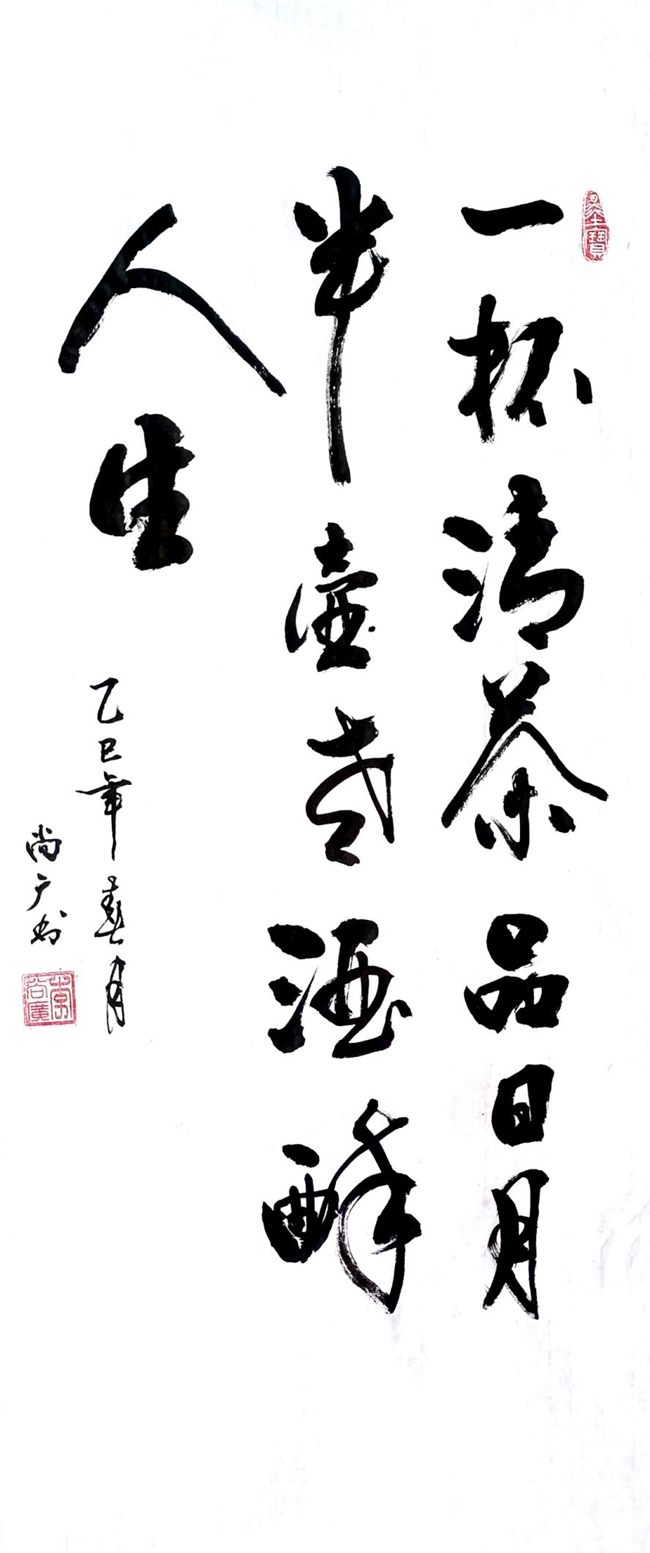 墨寶
一杯清茶品日月
半壺老酒醉
人生
乙巳年春月
尚广书